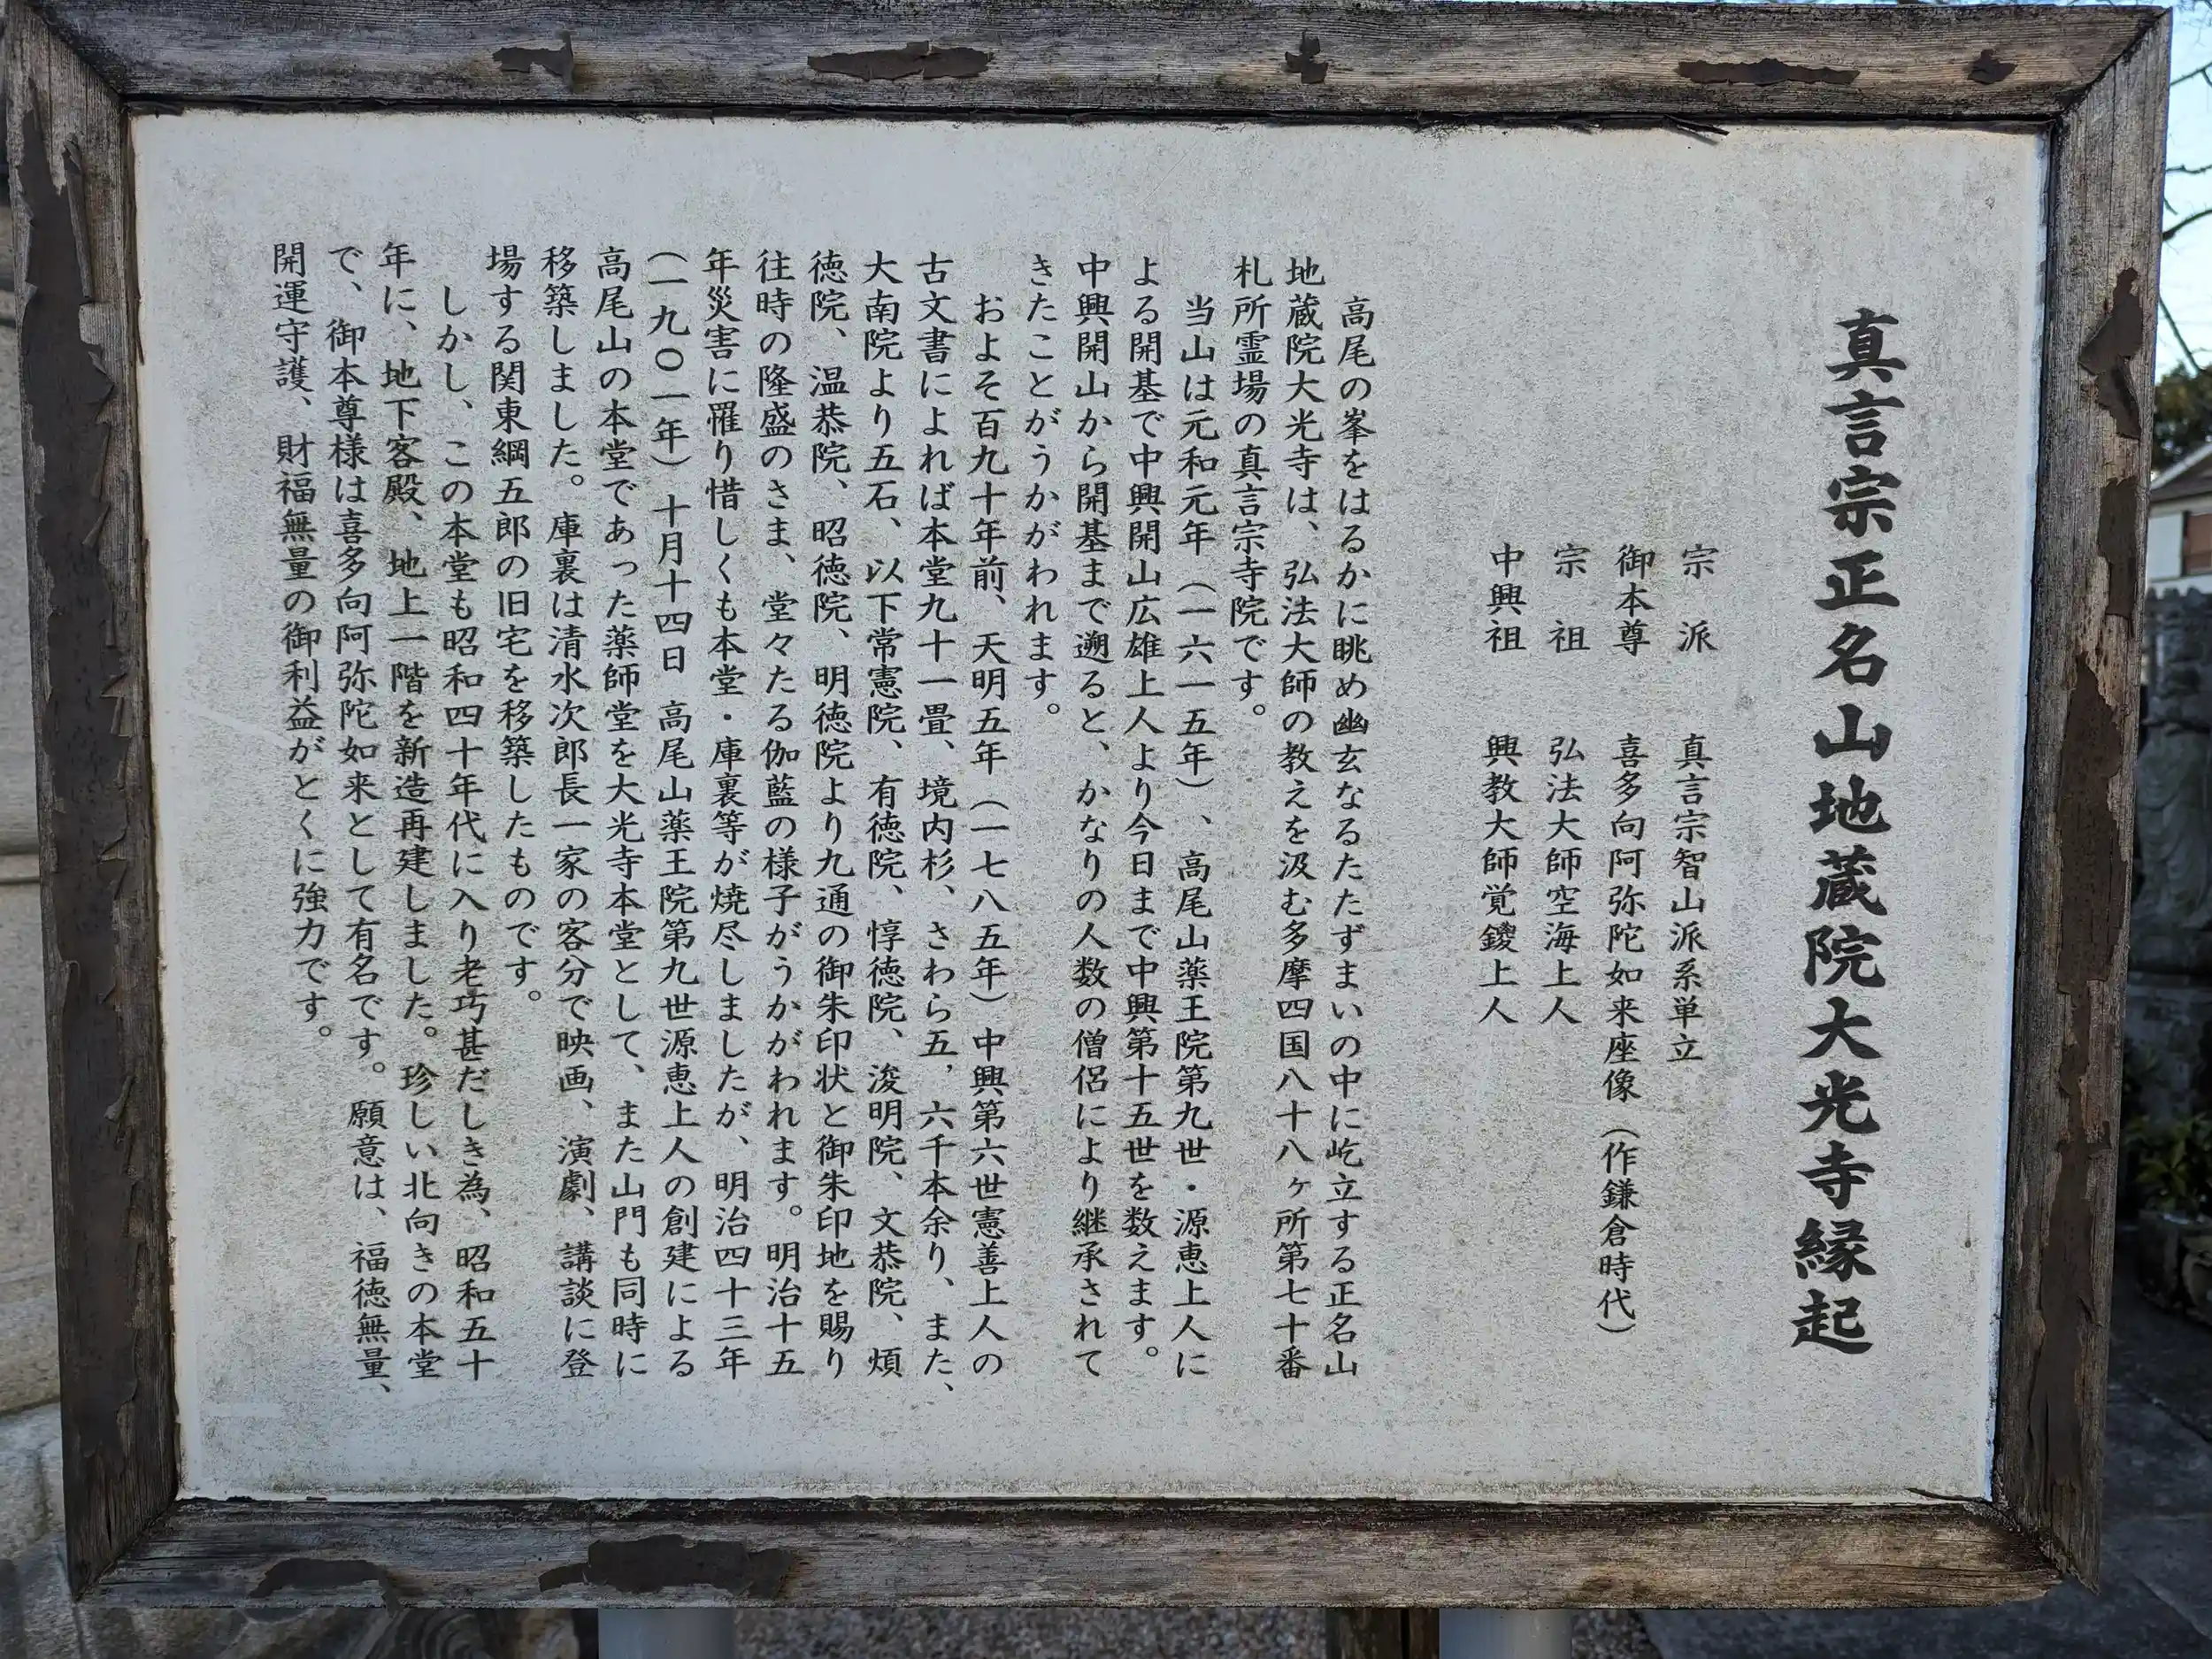 真言宗正名山地蔵院大光寺縁起
宗　派　　真言宗智山派系単立
御本尊　　喜多向阿弥陀如来座像（作鎌倉時代）
宗　祖　　弘法大師空海上人
中興祖　　興教大師覚鑁上人
高尾の峯をはるかに眺め幽玄なるたたずまいの中に屹立する正名山
地蔵院大光寺は、弘法大師の教えを汲む多摩四国八十八ヶ所第七十番
札所霊場の真言宗寺院です。
当山は元和元年（一六一五年）、高尾山薬王院第九世・源恵上人に
よる開基で中興開山広雄上人より今日まで中興第十五世を数えます。
中興開山から開基まで遡ると、かなりの人数の僧侶により継承されて
きたことがうかがわれます。
およそ百九十年前、天明五年（一七八五年）中興第六世憲善上人の
古文書によれば本堂九十一畳、境内杉、さわら五，六千本余り、また、
大南院より五石、以下常憲院、有徳院、惇徳院、浚明院、文恭院、煩
徳院、温恭院、昭徳院、明徳院より九通の御朱印状と御朱印地を賜り
往時の隆盛のさま、堂々たる伽藍の様子がうかがわれます。明治十五
年災害に罹り惜しくも本堂・庫裏等が焼尽しましたが、明治四十三年
（一九〇一年）十月十四日　高尾山薬王院第九世源恵上人の創建による
高尾山の本堂であった薬師堂を大光寺本堂として、また山門も同時に
移築しました。庫裏は清水次郎長一家の客分で映画、演劇、講談に登
場する関東綱五郎の旧宅を移築したものです。
しかし、この本堂も昭和四十年代に入り老巧甚だしき為、昭和五十
年に、地下客殿、地上一階を新造再建しました。珍しい北向きの本堂
で、御本尊様は喜多向阿弥陀如来として有名です。願意は、福徳無量、
開運守護、財福無量の御利益がとくに強力です。